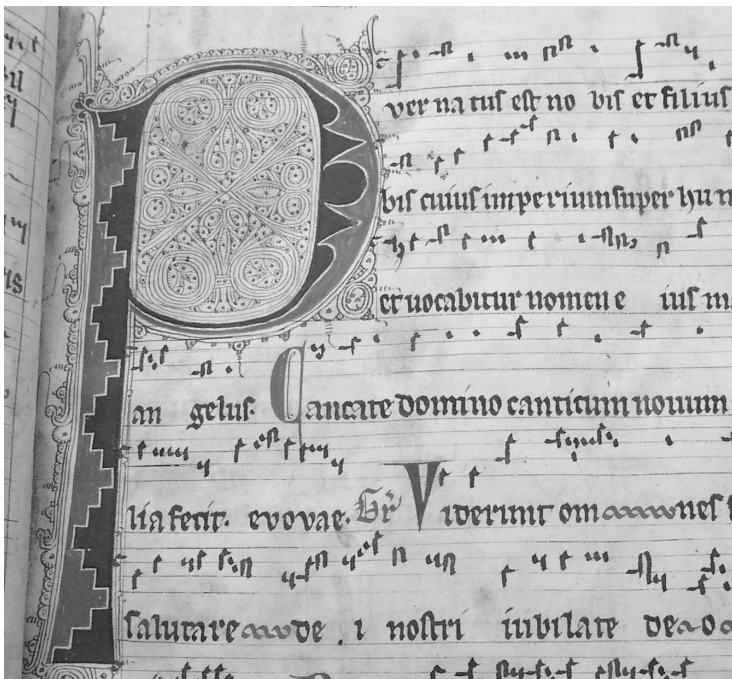 Puer na tus est no bis et filius
bis cuius imperium super hu m
et uocabitur nomen e ius m
an gelus. Cantate domino canticum nouum
lia fecit. evovae. Gr Viderunt om nes
salutare de i nostri iubilate de o